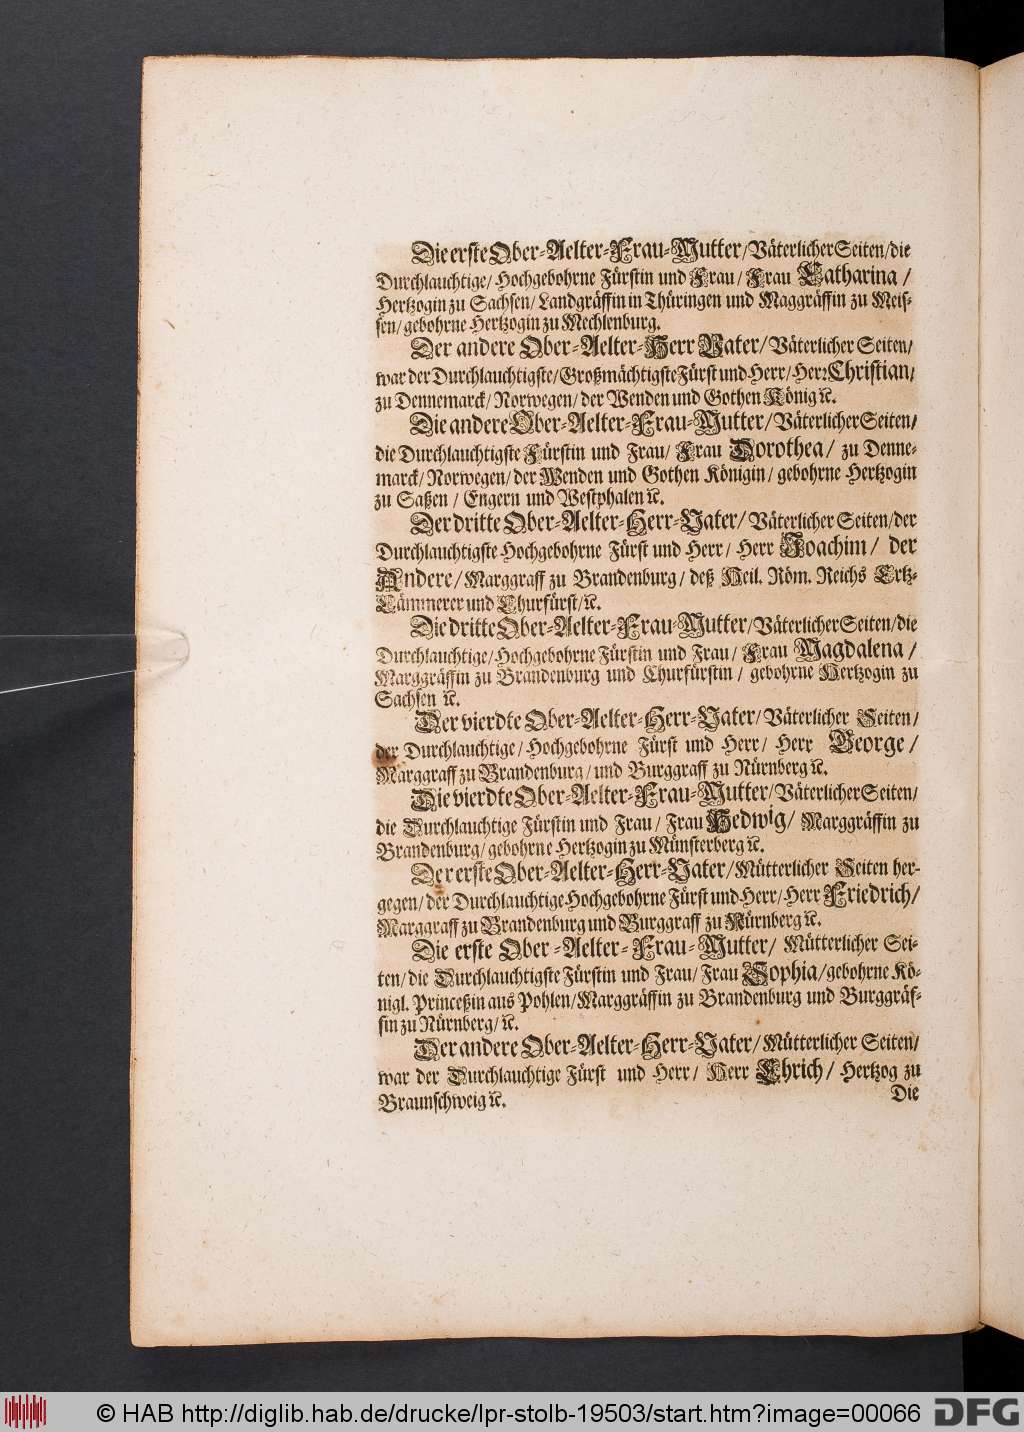 Die erste Ober-Aelter-Frau-Mutter/ Väterlicher Seiten/ die
Durchlauchtige/ Hochgebohrne Fürstin und Frau/ Frau Catharina/
Hertzogin zu Sachsen/ Landgräffin in Thüringen und Maggräffin zu Meis-
sen/ gebohrne Hertzogin zu Mechlenburg.
Der andere Ober-Aelter-Herr Vater/ Väterlicher Seiten/
war der Durchlauchtigste/ Großmächtigste Fürst und Herr/ Herr Christian/
zu Dennemarck/ Norwegen/ der Wenden und Gothen König ꝛc.
Die andere Ober-Aelter-Frau-Mutter/ Väterlicher Seiten/
die Durchlauchtigste Fürstin und Frau/ Frau Dorothea/ zu Denne-
marck/ Norwegen/ der Wenden und Gothen Königin/ gebohrne Hertzogin
zu Saßen/ Engern und Westphalen ꝛc.
Der dritte Ober-Aelter-Herr-Vater/ Väterlicher Seiten/ der
Durchlauchtigste Hochgebohrne Fürst und Herr/ Herr Joachim/ der
Andere/ Marggraff zu Brandenburg/ deß Heil. Röm. Reichs Ertz-
Cämmerer und Churfürst/ ꝛc.
Die dritte Ober-Aelter-Frau-Mutter/ Väterlicher Seiten/ die
Durchlauchtige/ Hochgebohrne Fürstin und Frau/ Frau Magdalena/
Marggräffin zu Brandenburg und Churfürstin/ gebohrne Hertzogin zu
Sachsen ꝛc.
Der vierdte Ober-Aelter-Herr-Vater/ Väterlicher Seiten/
der Durchlauchtige/ Hochgebohrne Fürst und Herr/ Herr George/
Marggraff zu Brandenburg/ und Burggraff zu Nürnberg ꝛc.
Die vierdte Ober-Aelter-Frau-Mutter/ Väterlicher Seiten/
die Durchlauchtige Fürstin und Frau/ Frau Hedwig/ Marggräffin zu
Brandenburg/ gebohrne Hertzogin zu Münsterberg ꝛc.
Der erste Ober-Aelter-Herr-Vater/ Mütterlicher Seiten her-
gegen/ der Durchlauchtige Hochgebohrne Fürst und Herr/ Herr Friedrich/
Marggraff zu Brandenburg und Burggraff zu Nürnberg ꝛc.
Die erste Ober-Aelter-Frau-Mutter/ Mütterlicher Sei-
ten/ die Durchlauchtigste Fürstin und Frau/ Frau Sophia/ gebohrne Kö-
nigl. Princeßin aus Pohlen/ Marggräffin zu Brandenburg und Burggräf-
fin zu Nürnberg/ ꝛc.
Der andere Ober-Aelter-Herr-Vater/ Mütterlicher Seiten/
war der Durchlauchtige Fürst und Herr/ Herr Ehrich/ Hertzog zu
Braunschweig ꝛc.
Die
© HAB http://diglib.hab.de/drucke/lpr-stolb-19503/start.htm?image=00066
DFG